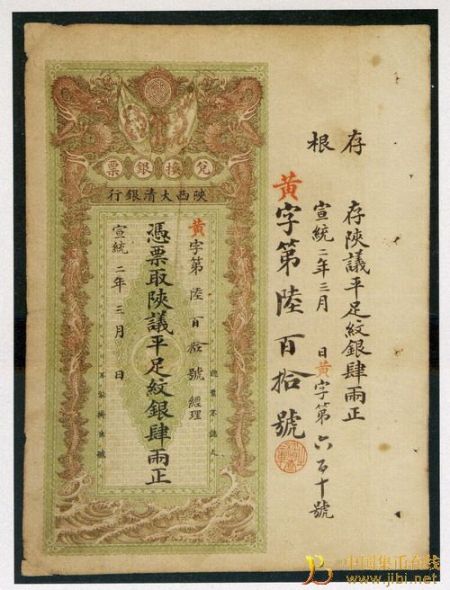 存根
存陝議平足紋銀肆兩正
宣統二年三月 日黃字第六百十號
黃字第陸百拾號
兌換銀票
陝西大清銀行
黃字第陸百拾號經理
憑票取陝議平足紋銀肆兩正
宣統二年三月 日
認票不認人
中国集币在线
www.jibi.net